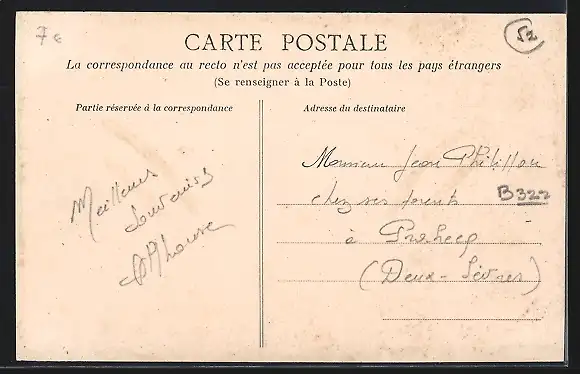 7€
52
CARTE POSTALE
La correspondance au recto n'est pas acceptée pour tous les pays étrangers
(Se renseigner à la Poste)
Partie réservée à la correspondance
Adresse du destinataire
Meilleurs
Souvenirs
Monsieur Jean
chez ses parents
B322
à Prahecq
(Deux-Sèvres)